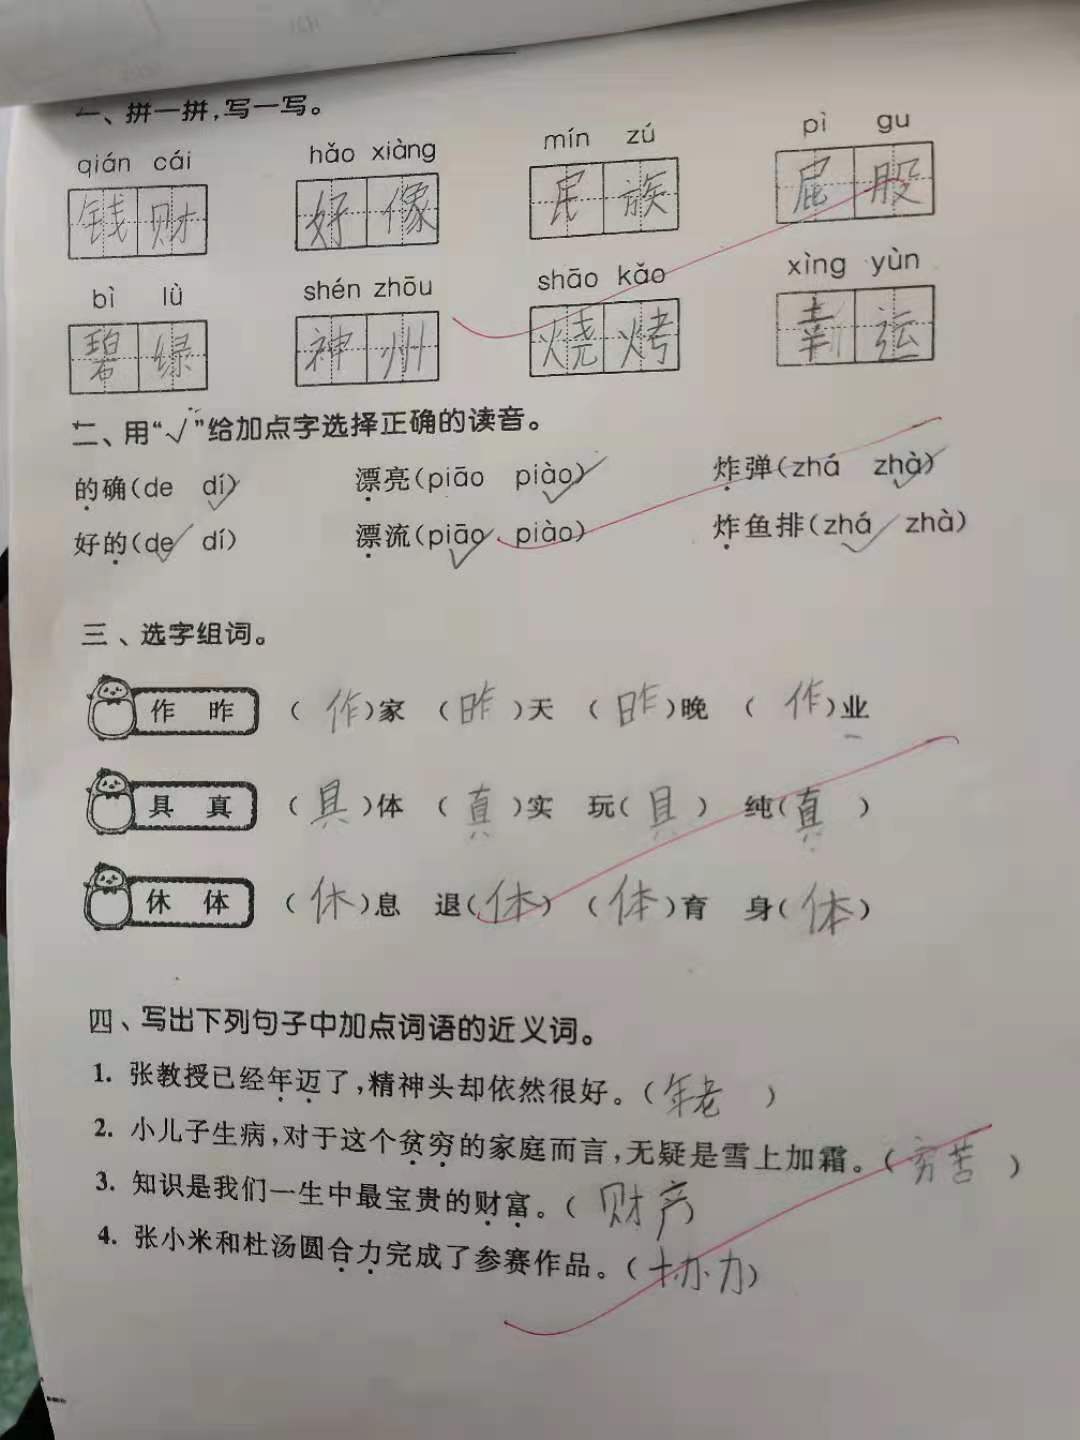 一、拼一拼,写一写。
qián cái hǎo xiàng mín zú pì gu
钱财 好像 民族 屁股
bì lǜ shén zhōu shāo kǎo xìng yùn
碧绿 神州 烧烤 幸运
二、用“√”给加点字选择正确的读音。
的确(de dí)✓ 漂亮(piāo piào)✓ 炸弹(zhá zhà)✓
好的(de✓ dí) 漂流(piāo✓ piào) 炸鱼排(zhá✓ zhà)
三、选字组词。
作 昨 (作)家 (昨)天 (昨)晚 (作)业
具 真 (具)体 (真)实 玩(具) 纯(真)
休 体 (休)息 退(体) (体)育 身(体)
四、写出下列句子中加点词语的近义词。
1. 张教授已经年迈了,精神头却依然很好。(年老)
2. 小儿子生病,对于这个贫穷的家庭而言,无疑是雪上加霜。(穷苦)
3. 知识是我们一生中最宝贵的财富。(财产)
4. 张小米和杜汤圆合力完成了参赛作品。(协力)